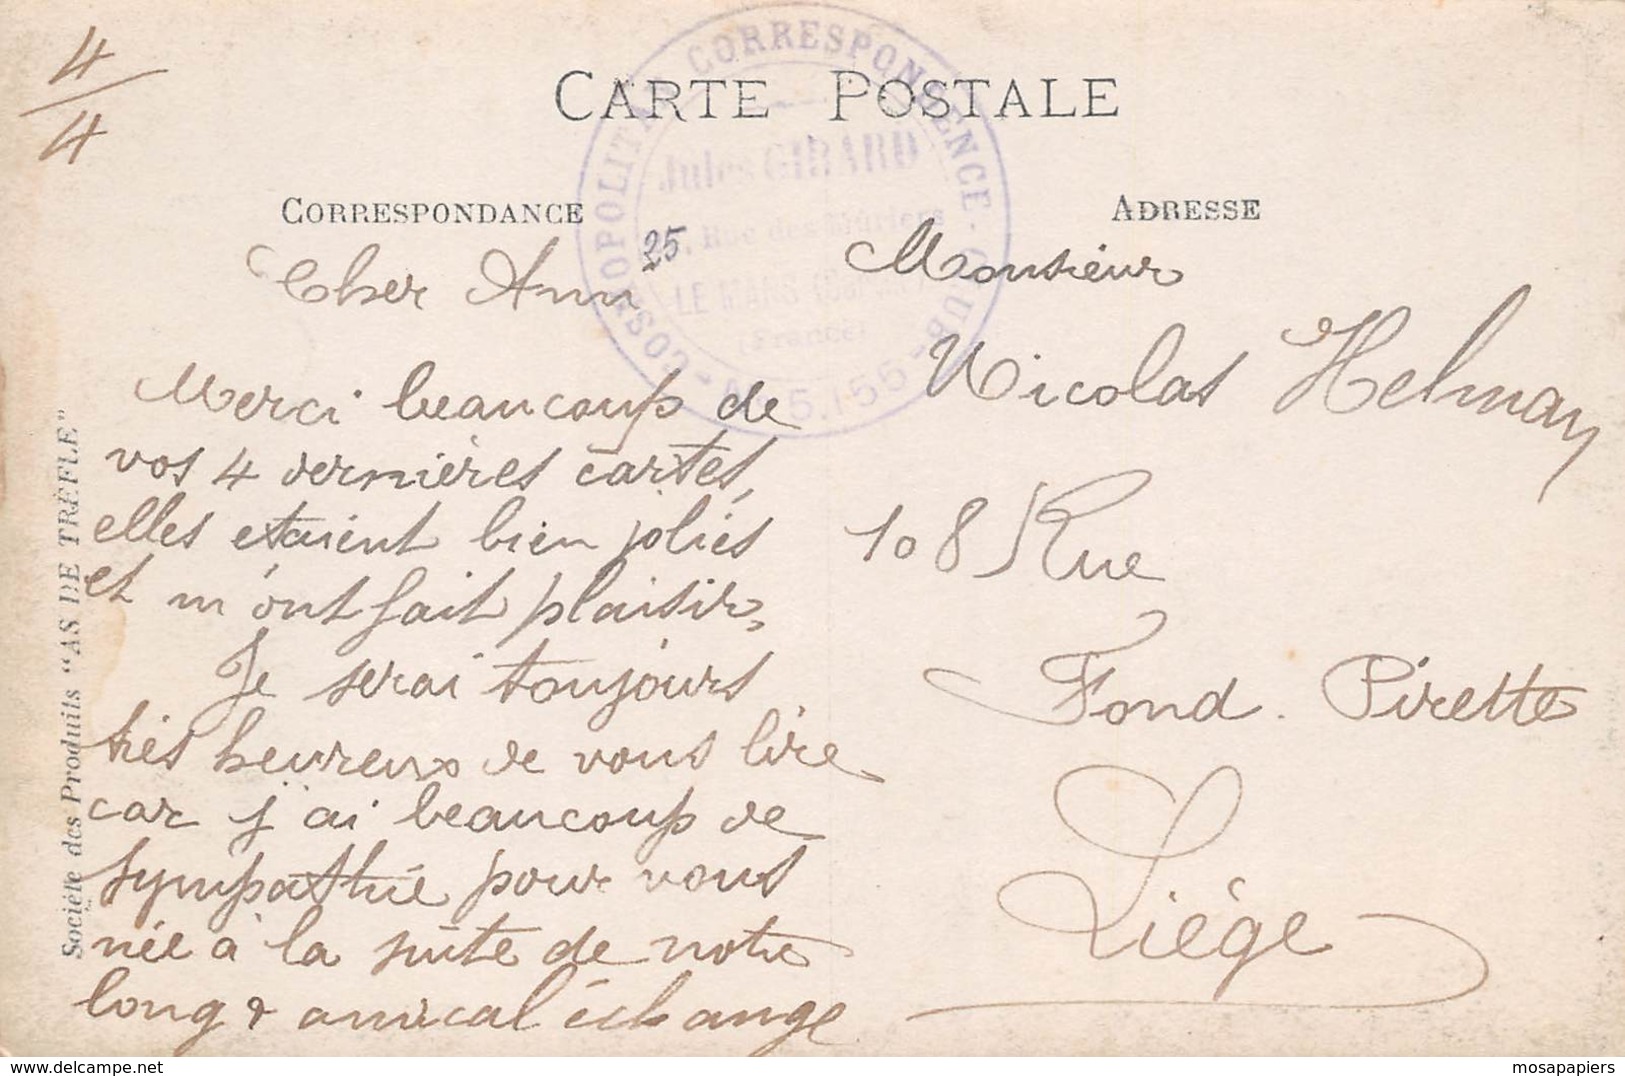 4/4
CARTE POSTALE
COSMOPOLITAN CORRESPONDENCE CLUB
Jules GIRARD
Rue des Mûriers
LE MANS (Sarthe)
(France)
5.155
CORRESPONDANCE
ADRESSE
25
Cher Ami
Merci beaucoup de
vos 4 dernières cartes,
elles étaient bien jolies
et m'ont fait plaisir,
Je serai toujours
très heureux de vous lire
car j'ai beaucoup de
sympathie pour vous
née à la suite de notre
long & amical échange
Monsieur
Nicolas Helman
108 Rue
Fond. Pirette
Liége
Société des Produits "AS DE TRÈFLE"
mosapapiers